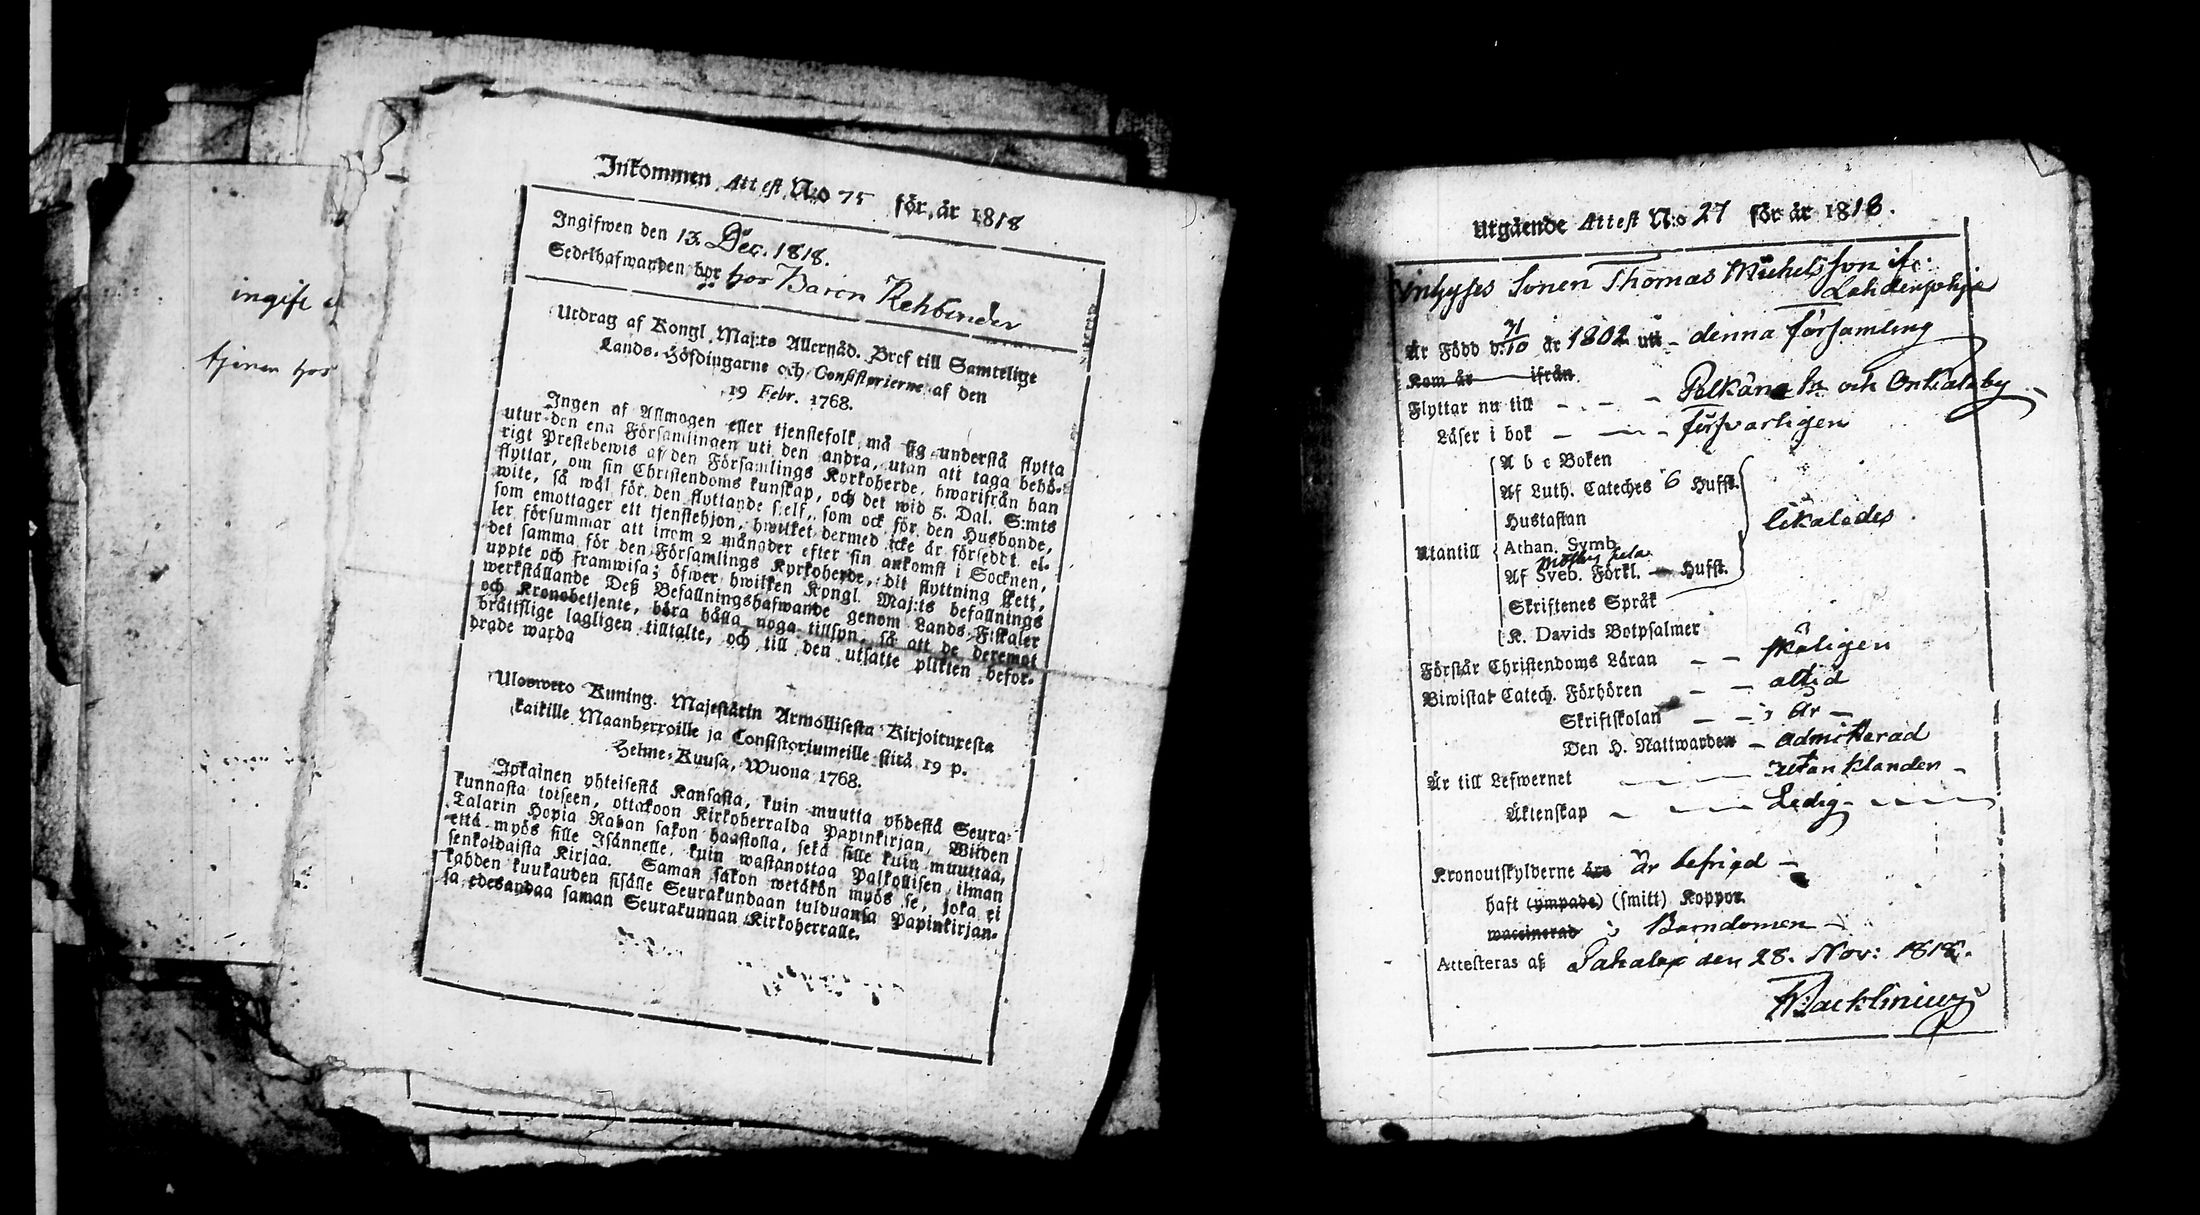 ingift
tjenar hos
Inkommen Attest N:o 75 för år 1818
Ingifwen den 13. Dec. 1818.
Sedelhafwanden bor hos Baron Rehbinder
Utdrag af Kongl. Maj:ts Allernåd. Bref till Samtelige
Lands-Höfdingarne och Consistorierne af den
19 Febr. 1768.
Ingen af Allmogen eller tjenstefolk må sig understå flytta
utur den ena Församlingen uti den andra, utan att taga behö-
rigt Prestebewis af den Församlings Kyrkoherde, hwarifrån han
flyttar, om sin Christendoms kunskap, och det wid 5. Dal. S:mts
wite, så wäl för den flyttande sielf, som ock för den Husbonde,
som emottager ett tjenstehjon, hwilket dermed icke är försedt el-
ler försummar att inom 2 månader efter sin ankomst i Socknen,
det samma för den Församlings Kyrkoherde, dit flyttning skett,
uppte och framwisa; öfwer hwilken Kongl. Maj:ts befallnings
werkställande Deß Befallningshafwande genom Lands-Fiskaler
och Kronobetjente, böra hålla noga tillsyn, så att de deremot
bråttslige lagligen tilltalte, och till den utsatte plikten befor-
drade warda
Ulosweto Kuning. Majestätin Armollisesta Kirjoituxesta
kaikille Maanherroille ja Consistoriumeille siitä 19 p.
Helme-Kuusa, Wuona 1768.
Jokainen yhteisestä Kansasta, kuin muutta yhdestä Seura-
kunnasta toiseen, ottakoon Kirkoherralda Papinkirjan, Wiiden
Talarin Hopia Rahan sakon haastolla, sekä sille kuin muuttaa,
että myös sille Isännelle, kuin wastanottaa Palkollisen ilman
senkaldaista Kirjaa. Saman sakon wetäkön myös se, joka ei
kahden kuukauden sisälle Seurakundaan tulduansa Papinkirjan-
sa edesandaa saman Seurakunnan Kirkoherralle.
Utgående Attest N:o 27 för år 1818.
Inhyses Sonen Thomas Michelsson ifr.
Lahdenpohja
Är Född d. 31/10 år 1802 uti denna församling
Kom år ifrån
Flyttar nu till - - - Pelkäne Sn och Onkiala by
Läser i bok - - - försvarligen
Utantill
A b c Boken
Af Luth. Cateches 6 Hufst.
Hustaflan
Athan. Symb. likaledes
Af Sveb. Förkl. - Hufst.
Skriftenes Språk
K. Davids Botpsalmer
Förstår Christendoms Läran - - skäligen
Biwistat Catech. Förhören - - altid
Skriftskolan - - i år -
Den H. Nattwarden - admitterad
Är till Lefwernet - - utan klander -
Äktenskap - - Ledig -
Kronoutskylderne äro är befriad -
haft (ympade) (smitt) Koppor
waccinerad i Barndomen -
Attesteras af Sahalax den 28. Nov: 1818.
Backlinius